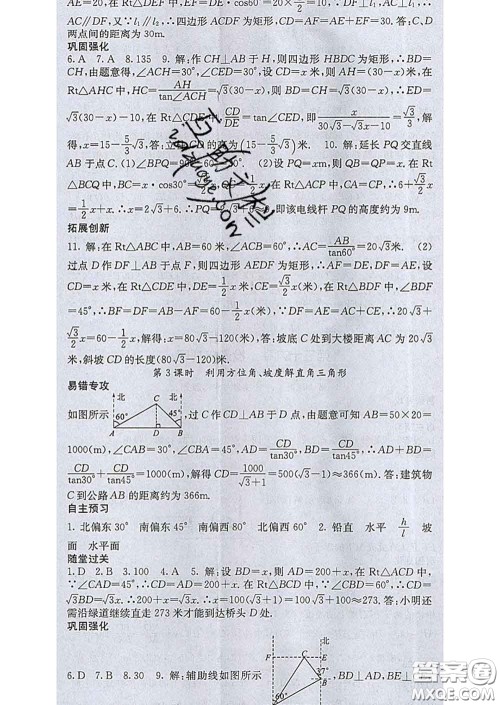 AE=20,在Rt△DEF中,EF=DE·cos60°=20×1/2=10.∵DF⊥l₁,AC⊥l₁,∴
AC∥DF,又∵l₁∥l₂,∴四边形ACDF为矩形.∴CD=AF=AE+EF=30.答:C、D
两点间的距离为30m.
巩固强化
6.A 7.A 8.135 9.解:作CH⊥AB于H,则四边形HBDC为矩形,∴BD=
CH,由题意得,∠ACH=30°,∠CED=30°.设CD=x米,则AH=(30-x)米,在
Rt△AHC中,HC=AH/tan∠ACH=√3(30-x),则BD=CH=√3(30-x),∴ED=
√3(30-x)-10,在Rt△CDE中,CD/DE=tan∠CED,即x/(30√3-√3x-10)=√3/3,解
得,x=15-5/3√3.答:立 CD的高为(15-5/3√3)米. 10.解:延长PQ交直线
AB于点C.(1)∠BPQ=90°-60°=30°.(2)设PQ=xm,则QB=QP=x.在Rt
△BCQ中,BC=x·cos30°=√3/2x,QC=1/2x,在Rt△ACP中,CA=CP,∴6+
√3/2x=1/2x+x.∴x=2√3+6.∴PQ=2√3+6≈9,即该电线杆PQ的高度约为9m.
拓展创新
11.解:(1)在Rt△ABC中,AB=60米,∠ACB=60°,∴AC=AB/tan60°=20√3米. (2)
过点D作DF⊥AB于点F,则四边形AEDF为矩形,∴AF=DE,DF=AE.设
CD=x米,在Rt△CDE中,DE=1/2x米,CE=√3/2x米,在Rt△BDF中,∠BDF
=45°,∴BF=DF=AB-AF=60-1/2x(米),∵DF=AE=AC+CE,∴20√3+
√3/2x=60-1/2x,解得:x=80√3-120(米).答:坡底C处到大楼距离AC为20√3
米,斜坡CD的长度(80√3-120)米.
第3课时 利用方位角、坡度解直角三角形
易错专攻
如图所示,过C作CD⊥AB于D点,由题意可知AB=50×20=
1000(m),∠CAB=30°,∠CBA=45°,AD=CD/tan30°,BD=CD/tan45°,∵AD+BD=
CD/tan30°+CD/tan45°=1000(m),解得CD=1000/(√3+1)=500(√3-1)≈366(m).答:建筑物
C到公路AB的距离约为366m.
自主预习
1.北偏东30° 南偏东45° 南偏西80° 北偏西60° 2.铅直 水平 h/l 坡
面 水平面
随堂过关
1.D 2.B 3.100 4.A 5.解:设BD=x,则AD=200+x,在Rt△ACD中,
∵∠CAD=45°,∴CD=AD=200+x.在Rt△BCD中,∵∠CBD=60°,∴CD=
√3BD=√3x.∴√3x=200+x.∴x=100(√3+1)=100√3+100≈273.答:小明还
需沿绿道继续直走273米才能到达桥头D处.
巩固强化
6.D 7.B 8.30 9.解:辅助线如图所示,BD⊥AD,BE⊥